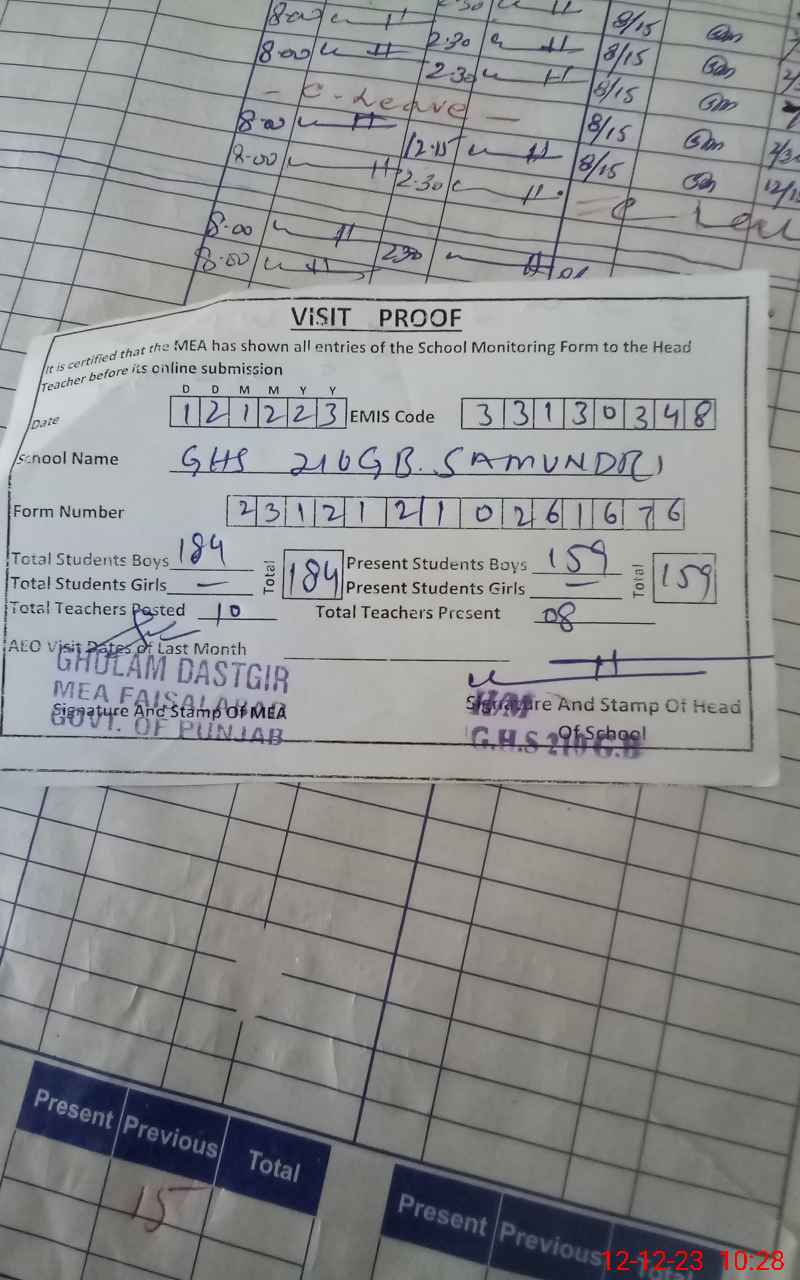 8:00 2:30
8:00 2:30 8/15
8:00 2:30 8/15
- C-Leave - 8/15
8:00 12:15 8/15
8:00 2:30 8/15
8:00
8:00 230
VISIT PROOF
It is certified that the MEA has shown all entries of the School Monitoring Form to the Head
Teacher before its online submission
D D M M Y Y
Date 1 2 1 2 2 3 EMIS Code 3 3 1 3 0 3 4 8
School Name GHS 210GB. SAMUNDRI
Form Number 2 3 1 2 1 2 1 1 0 2 6 1 6 7 6
Total Students Boys 184 Total 184 Present Students Boys 159 Total 159
Total Students Girls — Present Students Girls —
Total Teachers Posted 10 Total Teachers Present 08
AEO Visit Dates of Last Month
GHULAM DASTGIR
MEA FAISALABAD
GOVT. OF PUNJAB
Signature And Stamp Of MEA
H/M
G.H.S 210 G.B
Signature And Stamp Of Head
Of School
Present Previous Total
15
Present Previous Total
12-12-23 10:28